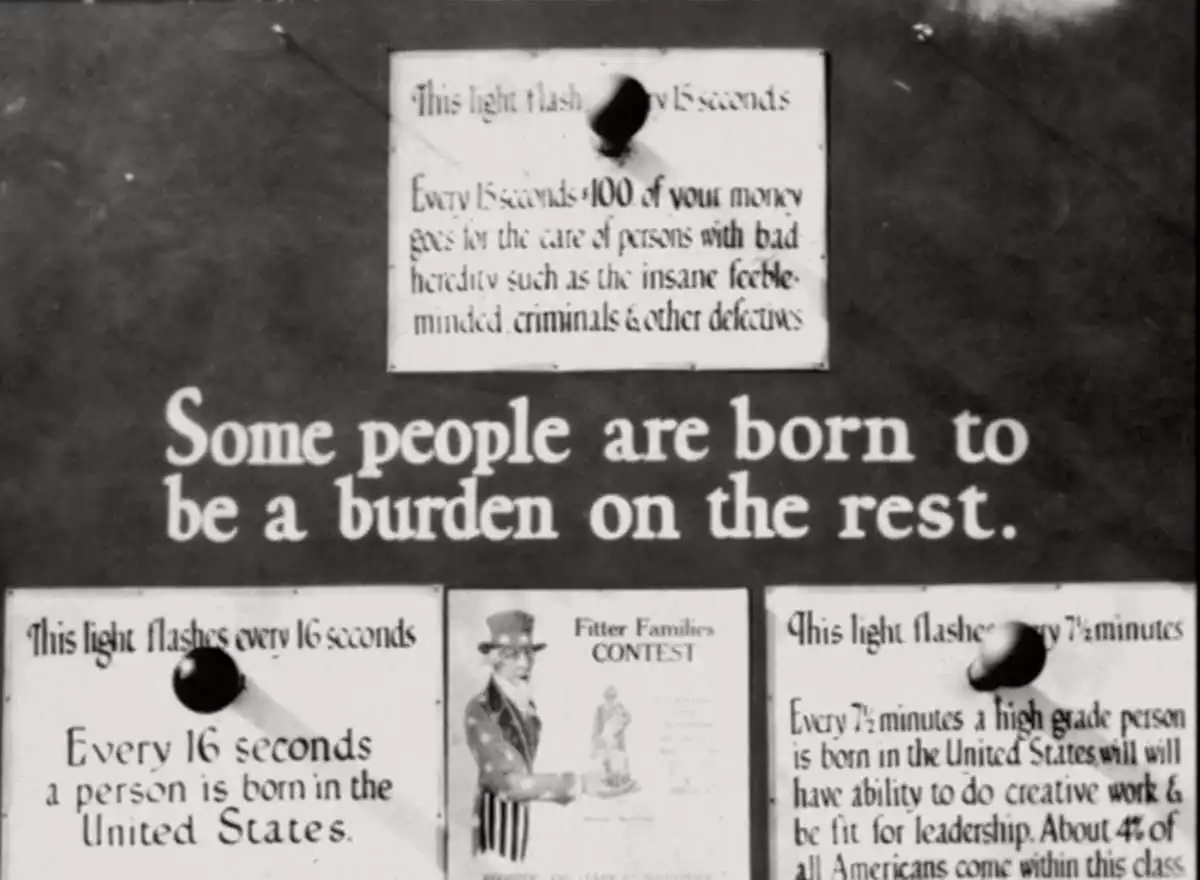 This light flash ry 15 seconds
Every 15 seconds $100 of your money
goes for the care of persons with bad
heredity such as the insane feeble-
minded, criminals & other defectives
Some people are born to
be a burden on the rest.
This light flashes every 16 seconds
Every 16 seconds
a person is born in the
United States.
Fitter Families
CONTEST
This light flashe ry 7½ minutes
Every 7½ minutes a high grade person
is born in the United States will will
have ability to do creative work &
be fit for leadership. About 4% of
all Americans come within this class